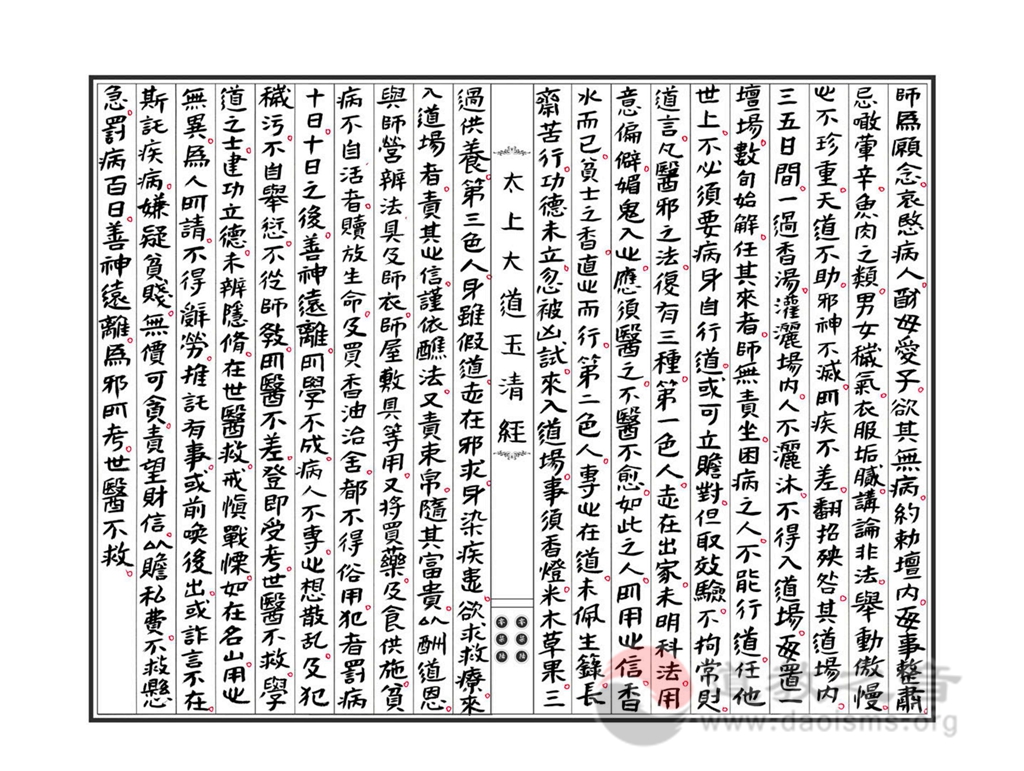 師爲願念哀愍病人酧如母愛子欲其無病約勑壇内每事整肅
忌噉葷辛魚肉之類男女穢氣衣服垢膩講論非法舉動傲慢
心不珍重天道不助邪神不滅所疾不差翻招殃咎其道場内
三五日間一過香湯灌灑場内人不灑沐不得入道場每置一
壇場數旬始解任其來者師無責坐困病之人不能行道任他
世上不必須要病身自行道或可立贍對但取效驗不拘常則
道言凡醫邪之法復有三種第一色人志在出家未明科法用
意偏僻媚鬼入心應須醫之不醫不愈如此之人所用心信香
水而已貧士之香直心而行第二色人專心在道未佩生籙長
齋苦行功德未立忽被凶試來入道場事須香燈米木草果三
太上大道玉清經
過供養第三色人身雖假道志在邪求身染疾患欲求救療來
入道場者責其心信謹依醮法又責束帛隨其富貴以酬道恩
與師營辨法具及師衣師屋敷具等用又将買藥及食供施貧
病不自活者贖放生命及買香油治舍都不得俗用犯者罰病
十日十日之後善神遠離所學不成病人不專心想散乱及犯
穢污不自舉愆不從師教所醫不差登即受考世醫不救學
道之士建功立德未辨隱脩在世醫救戒愼戰慄如在名山用心
無異爲人所請不得辭勞推託有事或前喚後出或詐言不在
斯託疾病嫌疑貧賤無價可貪責望財信以贍私費不救懸
急罰病百日善神遠離爲邪所考世醫不救
道教之音
www.daoisms.org